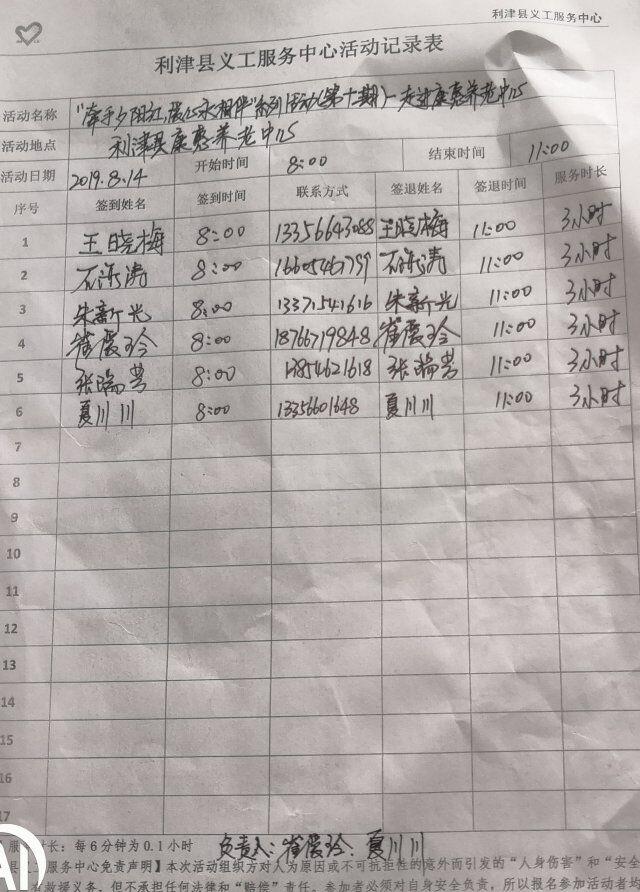 利津县义工服务中心
利津县义工服务中心活动记录表
活动名称 "牵手夕阳红,暖心永相伴"系列活动(第十期)-走进康惠养老中心
活动地点 利津县康惠养老中心
活动日期 2019.8.14 开始时间 8:00 结束时间 11:00
序号 签到姓名 签到时间 联系方式 签退姓名 签退时间 服务时长
1 王晓梅 8:00 13356643088 王晓梅 11:00 3小时
2 石涛 8:00 11:00 3小时
3 朱新光 8:00 13371541616 朱新光 11:00 3小时
4 崔霞玲 8:00 18766719848 崔霞玲 11:00 3小时
5 张瑞芳 8:00 13854621618 张瑞芳 11:00 3小时
6 夏川川 8:00 13356601648 夏川川 11:00 3小时
7
8
9
10
11
12
13
14
15
16
17
服务时长:每6分钟为0.1小时 负责人:崔霞玲、夏川川
县义工服务中心免责声明】本次活动组织方对人为原因或不可抗拒性的意外而引发的"人身伤害"和"安全
有救援义务,但不承担任何法律和"赔偿"责任。参加者必须对自身安全负责,所以报名参加活动者